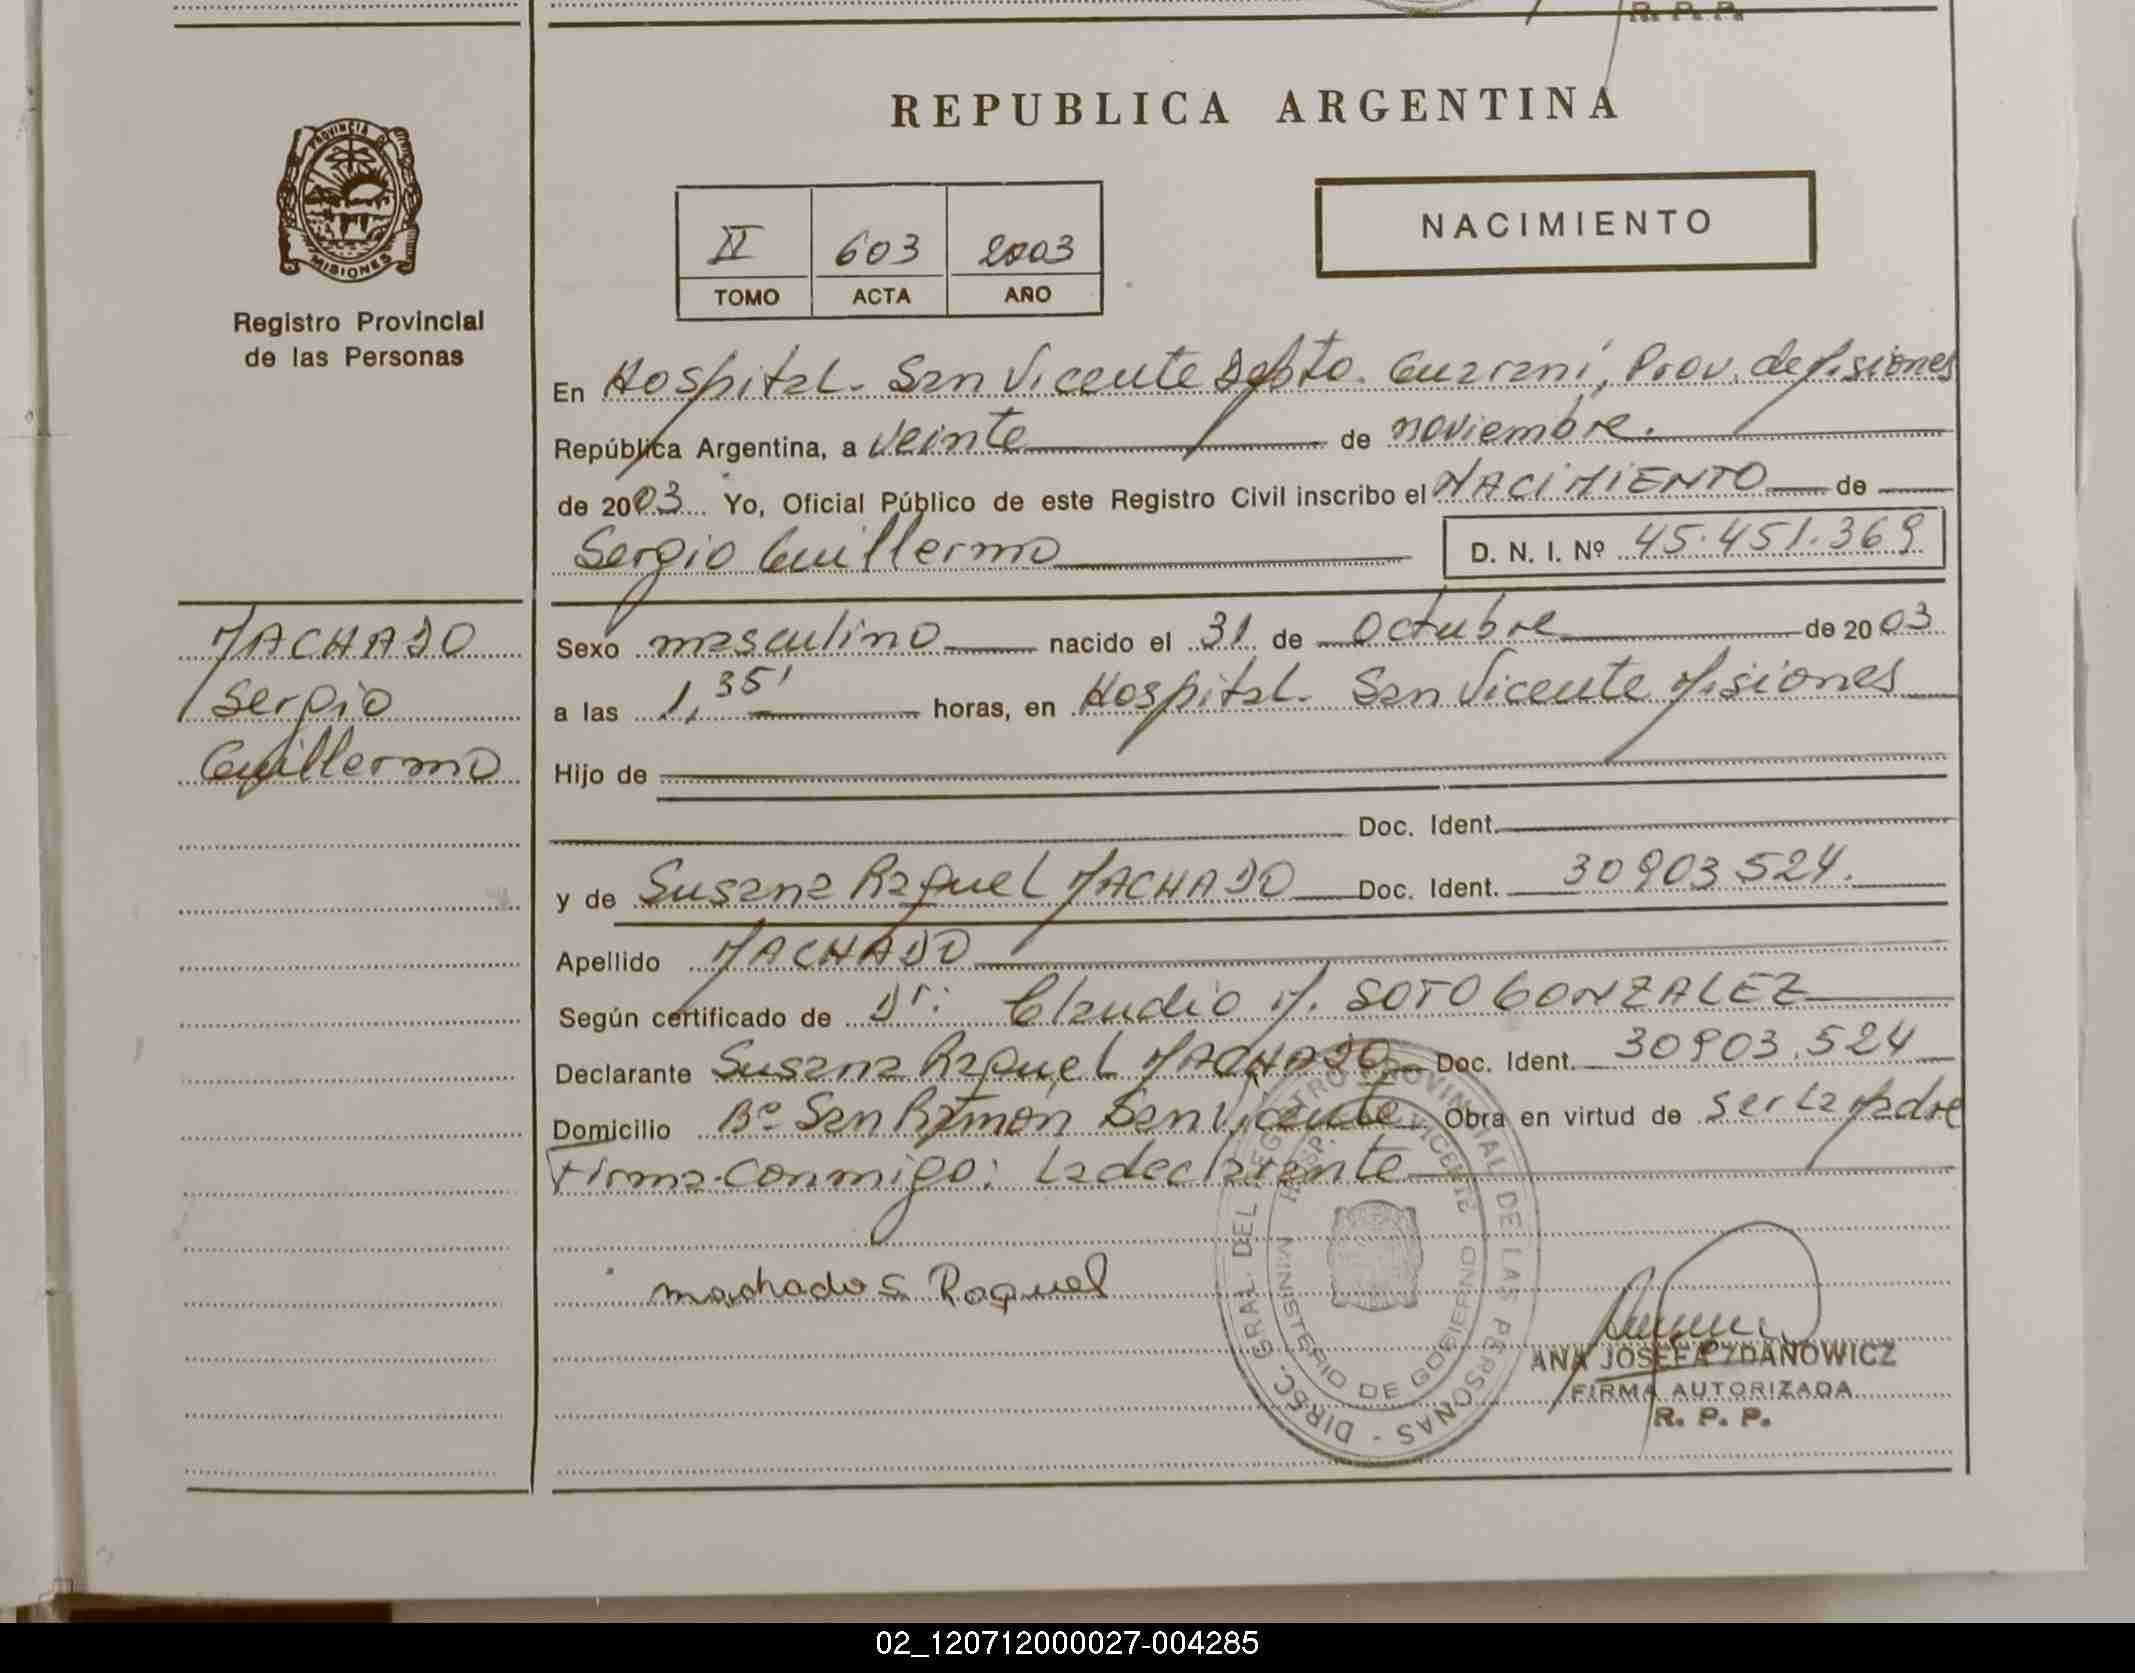 R. P. P.
REPUBLICA ARGENTINA
PROVINCIA DE
MISIONES
Registro Provincial
de las Personas
NACIMIENTO
II 603 2003
TOMO ACTA AÑO
En Hospital. San Vicente Depto. Guaraní, Prov. de Misiones
República Argentina, a veinte de noviembre.
de 2003 Yo, Oficial Público de este Registro Civil inscribo el NACIMIENTO de
Sergio Guillermo D. N. I. Nº 45.451.369
MACHADO
Sergio
Guillermo
Sexo masculino nacido el 31 de Octubre de 2003
a las 1,35' horas, en Hospital. San Vicente Misiones
Hijo de
Doc. Ident.
y de Susana Raquel MACHADO Doc. Ident. 30903524.
Apellido MACHADO
Según certificado de Dr: Claudio M. SOTO GONZALEZ
Declarante Susana Raquel MACHADO Doc. Ident. 30903.524
Domicilio Bº San Ramón San Vicente Obra en virtud de ser la Madre
Firma conmigo: la declarante
machado S. Raquel
DIREC. GRAL. DEL REGISTRO PROVINCIAL DE LAS PERSONAS -
HOSP. VICENTE
MINISTERIO DE GOBIERNO
ANA JOSEFA ZDANOWICZ
FIRMA AUTORIZADA
R. P. P.
02_120712000027-004285